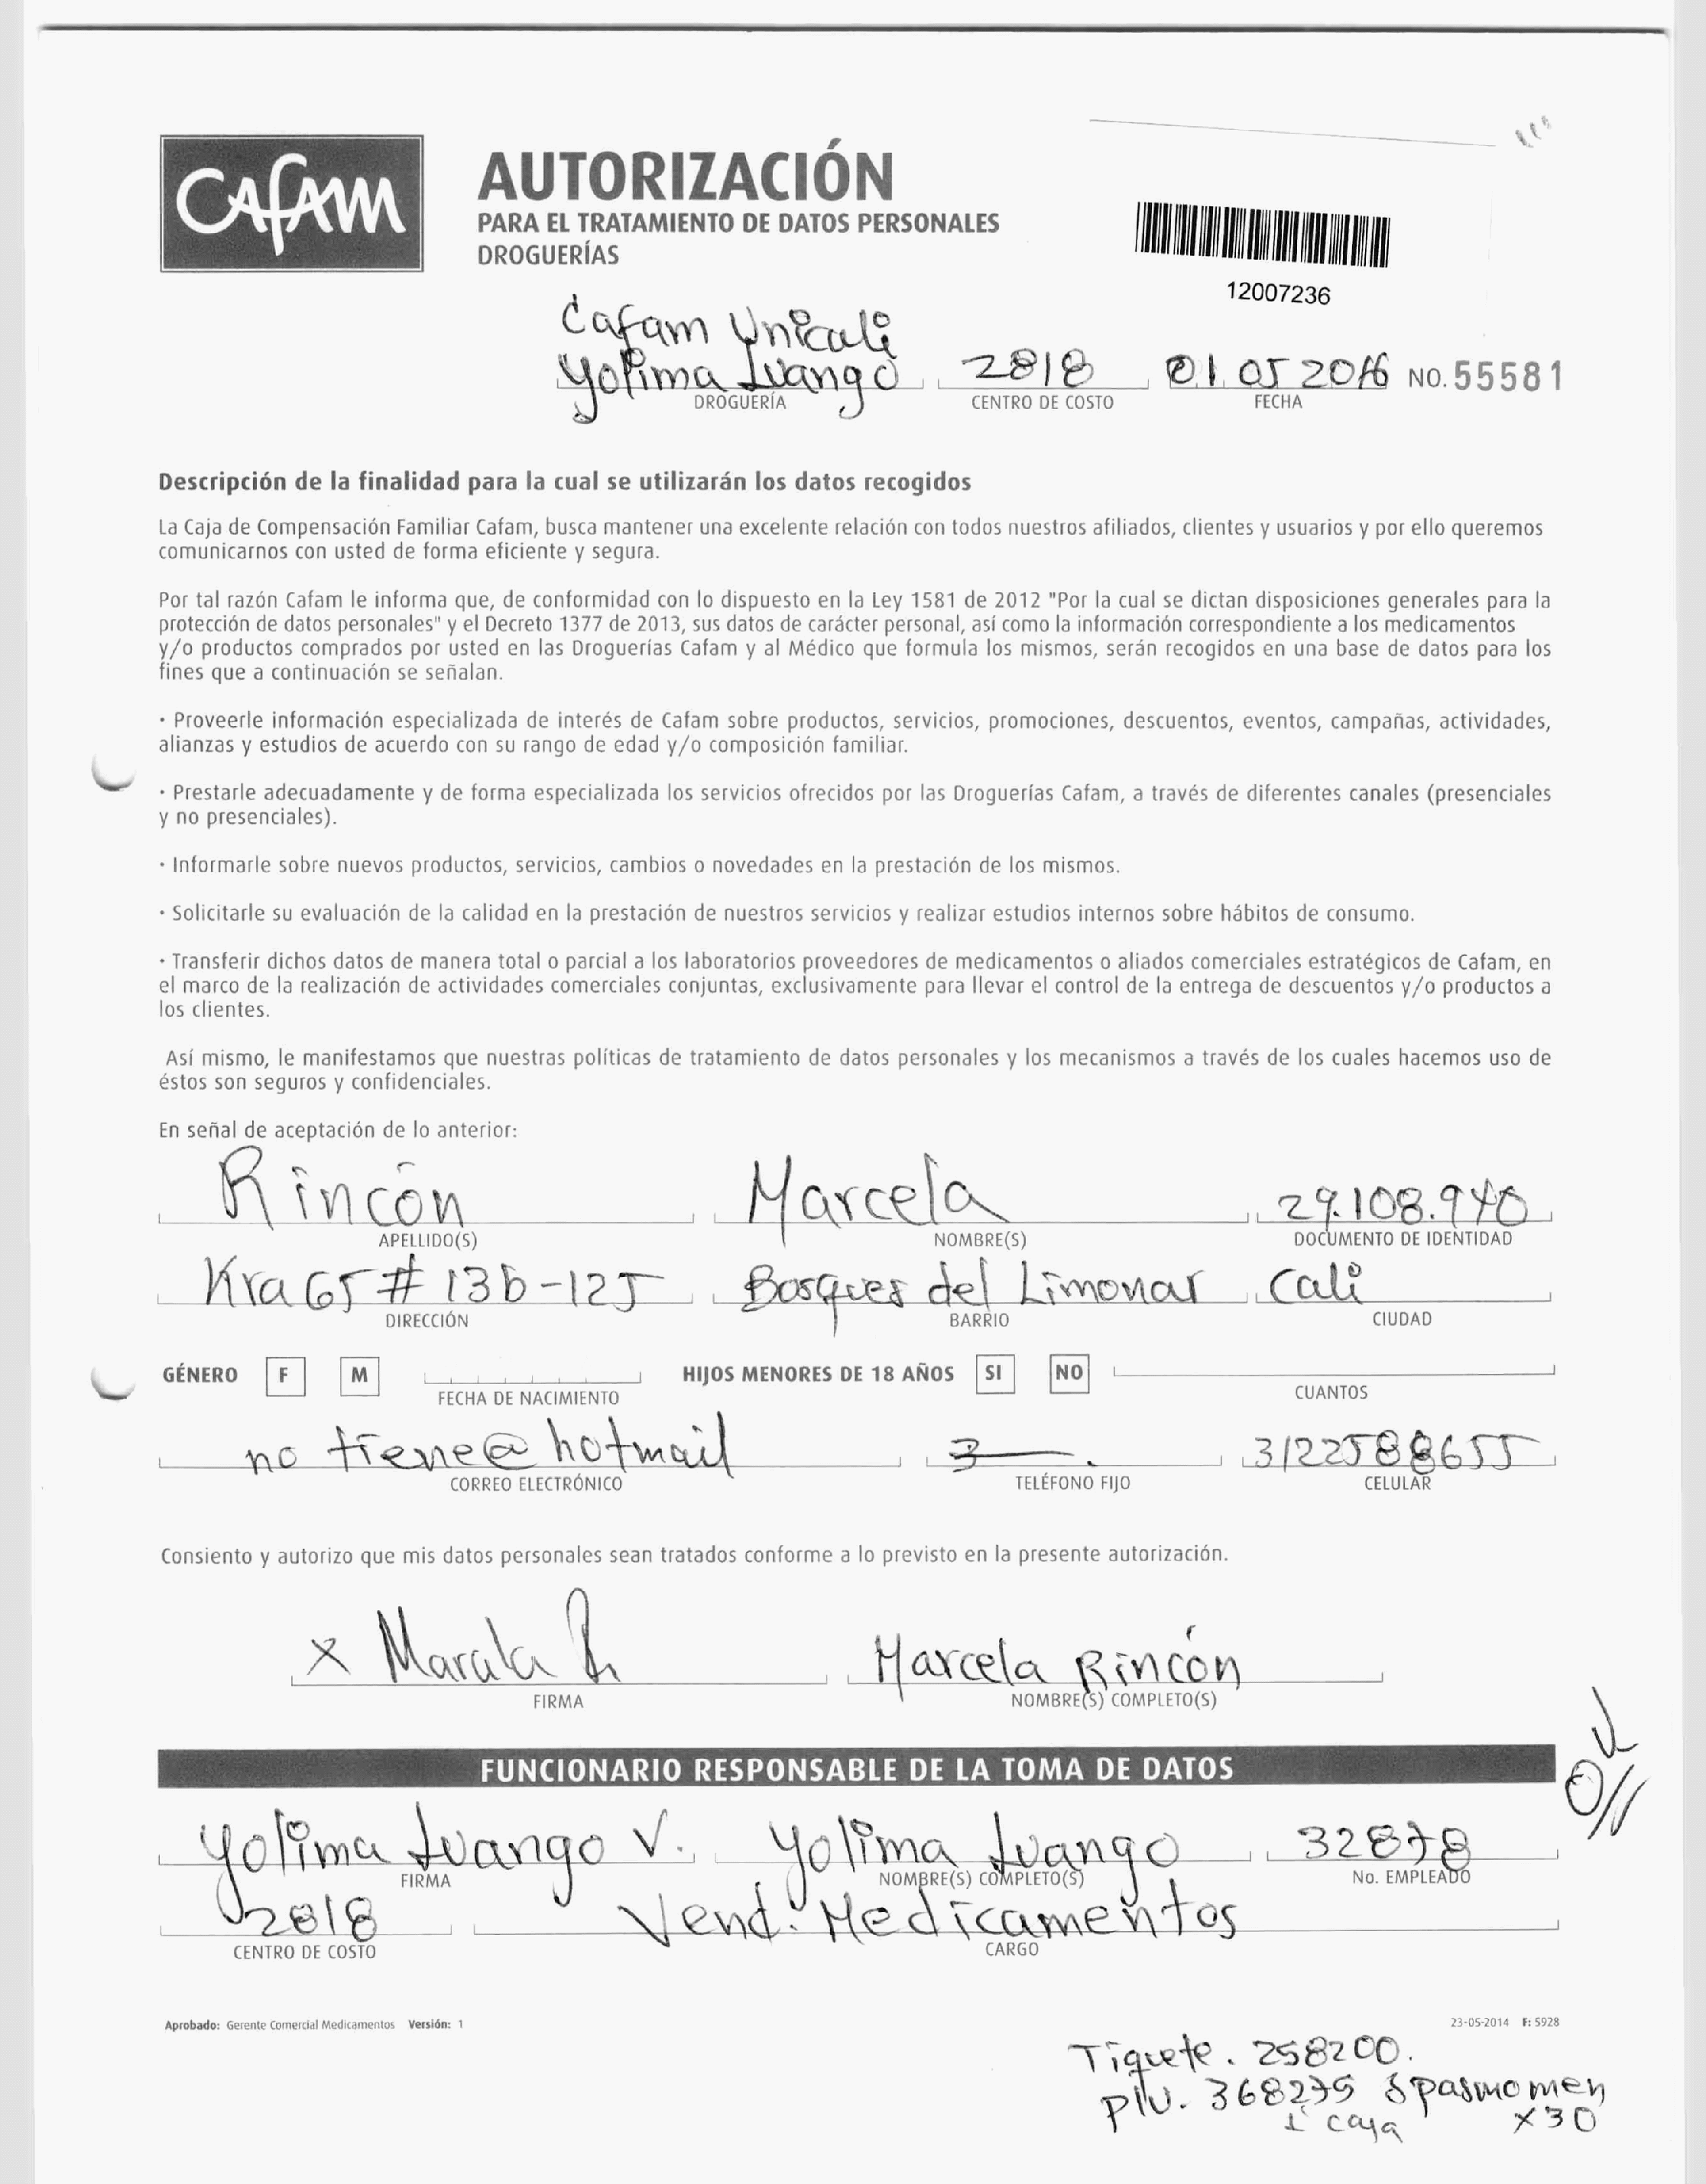 CAFAM
AUTORIZACIÓN
PARA EL TRATAMIENTO DE DATOS PERSONALES
DROGUERÍAS
12007236
Cafam Unicali
Yolima Luango 2818 01 05 2016 NO. 55581
DROGUERÍA CENTRO DE COSTO FECHA
Descripción de la finalidad para la cual se utilizarán los datos recogidos
La Caja de Compensación Familiar Cafam, busca mantener una excelente relación con todos nuestros afiliados, clientes y usuarios y por ello queremos
comunicarnos con usted de forma eficiente y segura.
Por tal razón Cafam le informa que, de conformidad con lo dispuesto en la Ley 1581 de 2012 "Por la cual se dictan disposiciones generales para la
protección de datos personales" y el Decreto 1377 de 2013, sus datos de carácter personal, así como la información correspondiente a los medicamentos
y/o productos comprados por usted en las Droguerías Cafam y al Médico que formula los mismos, serán recogidos en una base de datos para los
fines que a continuación se señalan.
· Proveerle información especializada de interés de Cafam sobre productos, servicios, promociones, descuentos, eventos, campañas, actividades,
alianzas y estudios de acuerdo con su rango de edad y/o composición familiar.
· Prestarle adecuadamente y de forma especializada los servicios ofrecidos por las Droguerías Cafam, a través de diferentes canales (presenciales
y no presenciales).
· Informarle sobre nuevos productos, servicios, cambios o novedades en la prestación de los mismos.
· Solicitarle su evaluación de la calidad en la prestación de nuestros servicios y realizar estudios internos sobre hábitos de consumo.
· Transferir dichos datos de manera total o parcial a los laboratorios proveedores de medicamentos o aliados comerciales estratégicos de Cafam, en
el marco de la realización de actividades comerciales conjuntas, exclusivamente para llevar el control de la entrega de descuentos y/o productos a
los clientes.
Así mismo, le manifestamos que nuestras políticas de tratamiento de datos personales y los mecanismos a través de los cuales hacemos uso de
éstos son seguros y confidenciales.
En señal de aceptación de lo anterior:
Rincón Marcela 29.108.940
APELLIDO(S) NOMBRE(S) DOCUMENTO DE IDENTIDAD
Kra 65 # 13b-125 Bosques del Limonar Cali
DIRECCIÓN BARRIO CIUDAD
GÉNERO F M HIJOS MENORES DE 18 AÑOS SI NO
FECHA DE NACIMIENTO CUANTOS
no tiene@hotmail 3 3122588655
CORREO ELECTRÓNICO TELÉFONO FIJO CELULAR
Consiento y autorizo que mis datos personales sean tratados conforme a lo previsto en la presente autorización.
x Marcela R Marcela Rincón
FIRMA NOMBRE(S) COMPLETO(S)
FUNCIONARIO RESPONSABLE DE LA TOMA DE DATOS
Yolima Luango V. Yolima Luango 32878
FIRMA NOMBRE(S) COMPLETO(S) No. EMPLEADO
2818 Vend. Medicamentos
CENTRO DE COSTO CARGO
Aprobado: Gerente Comercial Medicamentos Versión: 1 23-05-2014 F: 5928
Tiquete. 258200.
plu. 368275 Spasmomen
1 caja x30